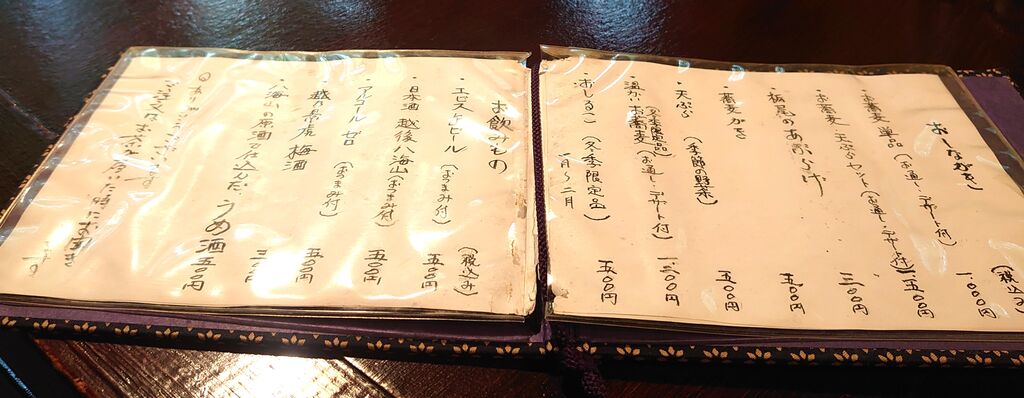 おしながき
(税込み)
・お蕎麦 単品(お通し・デザート付) 一、〇〇〇円
・お蕎麦 天ぷらセット(お通し・デザート付) 一、五〇〇円
三〇〇円
・板尾のあぶらげ 五〇〇円
・蕎麦がき 五〇〇円
・天ぷら(季節の野菜)
・温かいお蕎麦(お通し・デザート付)
(冬季限定品) 一、三〇〇円
・おしるこ(冬季限定品)
一月〜二月 五〇〇円
お飲みもの
(税込み)
・エビスビール(おつまみ付) 五〇〇円
・日本酒 越後八海山(おつまみ付) 五〇〇円
・アルコール ゼロ(おつまみ付) 五〇〇円
・越乃景虎 梅酒 五〇〇円
・八海山の原酒で仕込んだ うめ酒 五〇〇円